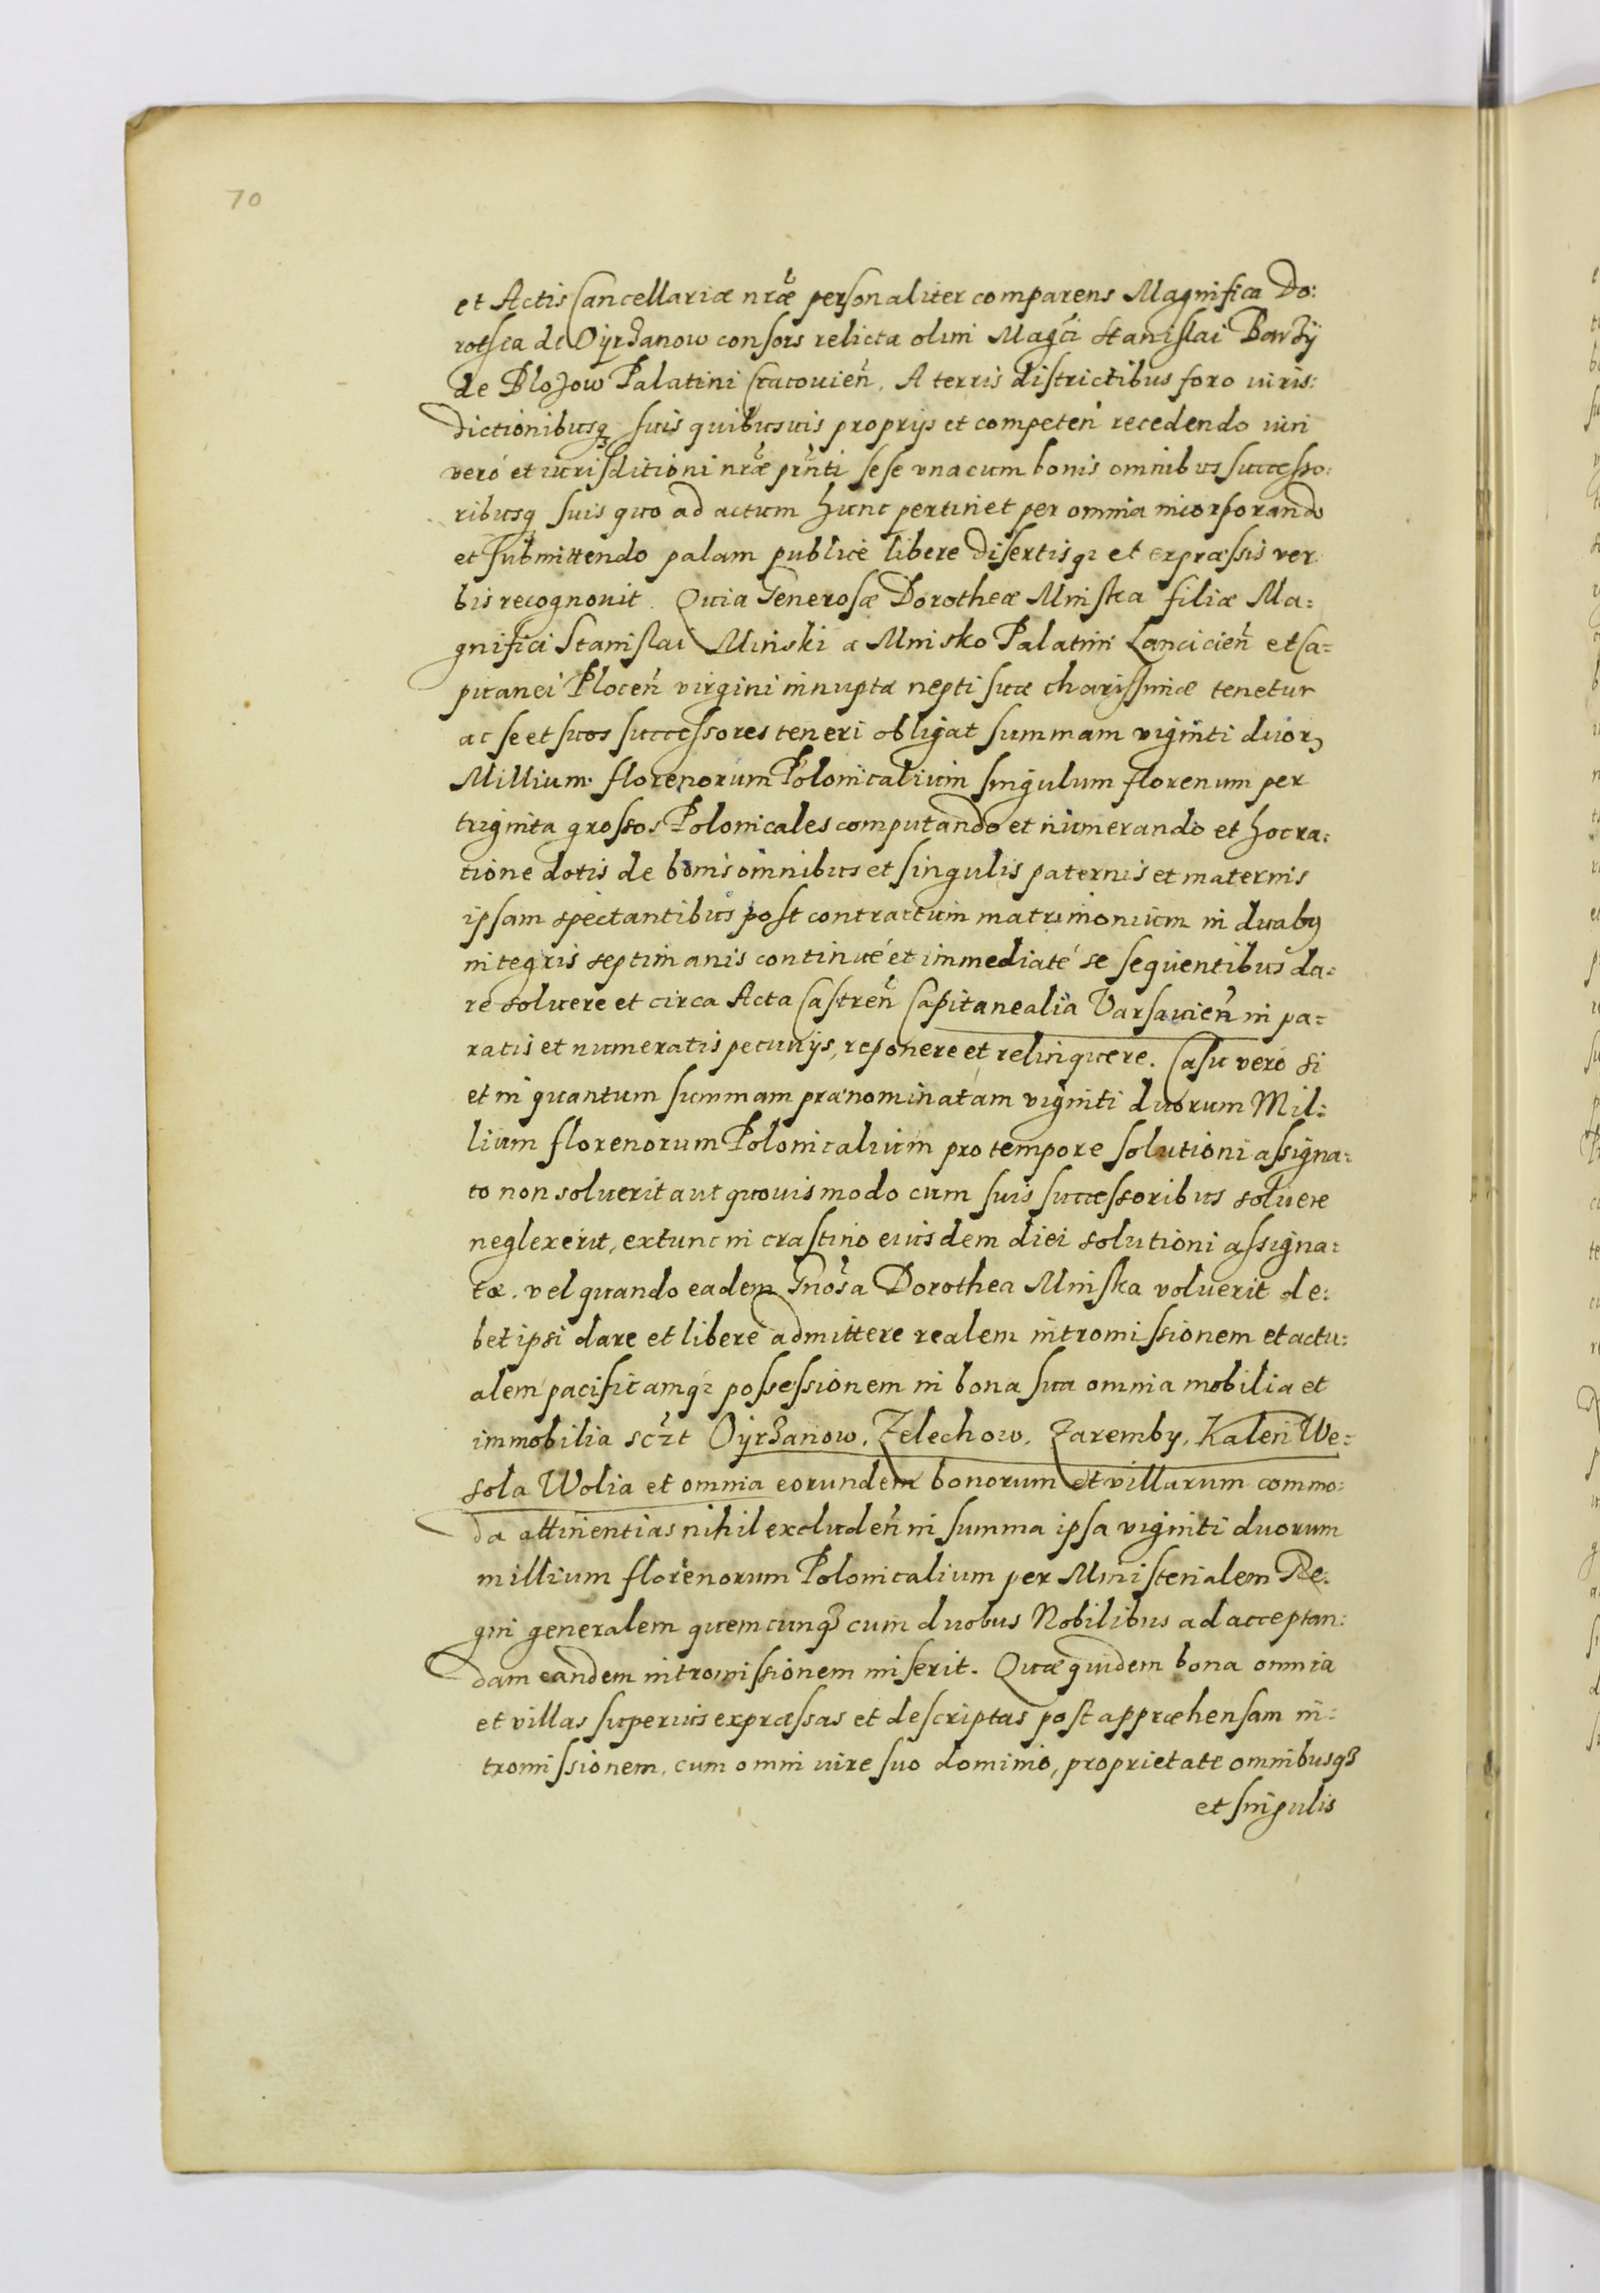 70
et Actis Cancellariæ nræ personaliter comparens Magnifica Do:
rothea de Oyrzanow consors relicta olim Magci Stanislai Barzÿ
de Blozow Palatini Cracouien̄. A terris districtibus foro iuris:
dictionibusq suis quibusuis proprijs et competen̄ recedendo iuri
veró et iurisditioni nræ prn̄ti sese vna cum bonis omnibus successo:
ribusq suis quo ad actum hunc pertinet per omnia incorporando
et submittendo palam publicè libere disertisq; et expræssis ver
bis recognouit. Quia Generosæ Dorotheæ Mniska filiæ Ma:
gnifici Stanislai Minski a Mnisko Palatini Lancicien̄ et Ca:
pitanei Plocen̄ virgini innuptæ nepti suæ charissimæ tenetur
ac se et suos successores teneri obligat summam viginti duor
Millium florenorum Polonicalium singulum florenum per
triginta grossos Polonicales computando et numerando et hoc ra:
tione dotis de bonis omnibus et singulis paternis et maternis
ipsam spectantibus post contractum matrimonium in duab9
integris septimanis continué et immediaté se sequentibus da:
re soluere et circa Acta Castren̄ Capitanealia Varsauien̄ in pa:
ratis et numeratis pecunijs, reponere et relinquere. Casu vero si
et in quantum summam prænominatam viginti duorum Mil:
lium florenorum Polonicalium pro tempore solutioni assigna:
to non soluerit aut quouis modo cum suis successoribus soluere
neglexerit, extunc in crastino eiusdem diei solutioni assigna:
tæ. vel quando eadem Gnosa Dorothea Mniska voluerit de:
bet ipsi dare et libere admittere realem intromissionem et actu:
alem pacificamq; possessionem in bona sua omnia mobilia et
immobilia sczt Oyrzanow, Zelechow, Zaremby, Kalen We:
sola Wolia et omnia eorundem bonorum et villarum commo:
da attinentias nihil excluden̄ in summa ipsa viginti duorum
millium florenorum Polonicalium per Ministerialem Re:
gni generalem quemcunq3 cum duobus Nobilibus ad acceptan:
dam eandem intromissionem miserit. Quæ quidem bona omnia
et villas superius expræssas et descriptas post appræhensam in:
tromissionem, cum omni iure suo dominio, proprietate omnibusq3
et singulis